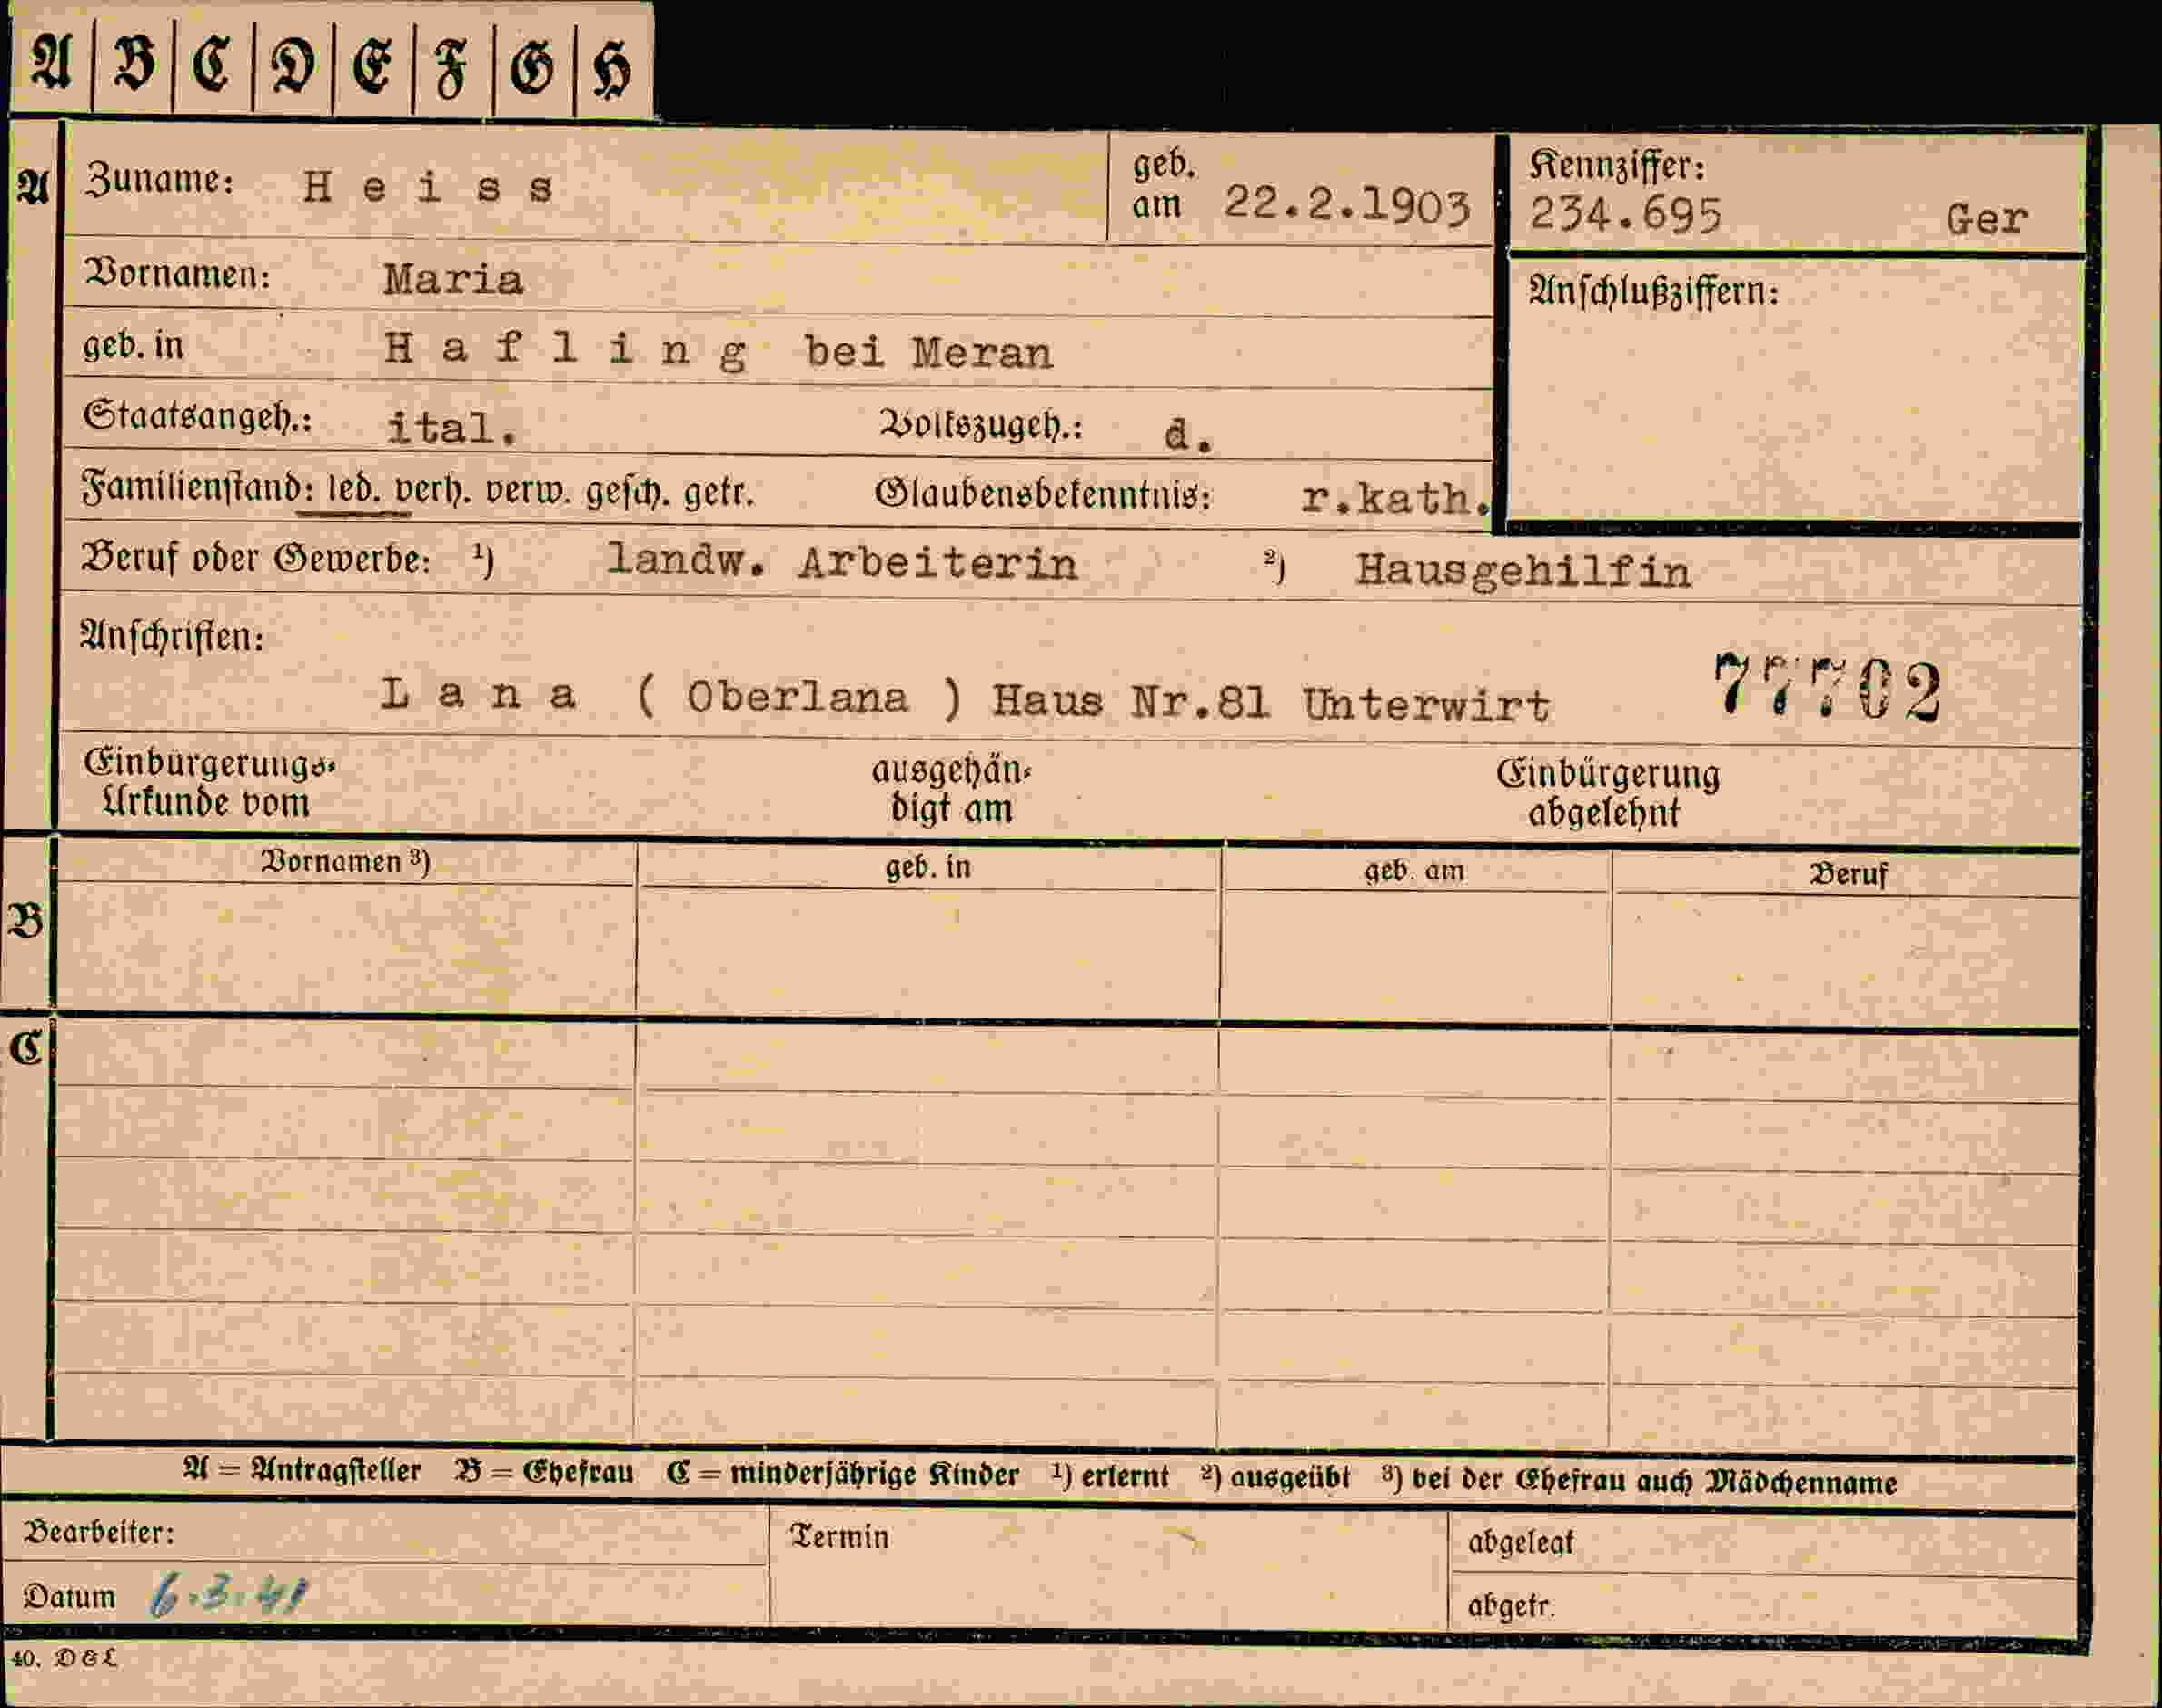 A B C D E F G H
A Zuname: Heiss geb. am 22.2.1903 Kennziffer: 234.695 Ger
Vornamen: Maria Anschlußziffern:
geb. in Hafling bei Meran
Staatsangeh.: ital. Volkszugeh.: d.
Familienstand: led. verh. verw. gesch. getr. Glaubensbekenntnis: r.kath.
Beruf oder Gewerbe: ¹) landw. Arbeiterin ²) Hausgehilfin
Anschriften:
Lana ( Oberlana ) Haus Nr.81 Unterwirt 77702
Einbürgerungs- ausgehän- Einbürgerung
Urkunde vom digt am abgelehnt
Vornamen ³) geb. in geb. am Beruf
B
C
A = Antragsteller B = Ehefrau C = minderjährige Kinder ¹) erlernt ²) ausgeübt ³) bei der Ehefrau auch Mädchenname
Bearbeiter: Termin abgelegt
Datum 6.3.41 abgetr.
40. D & L